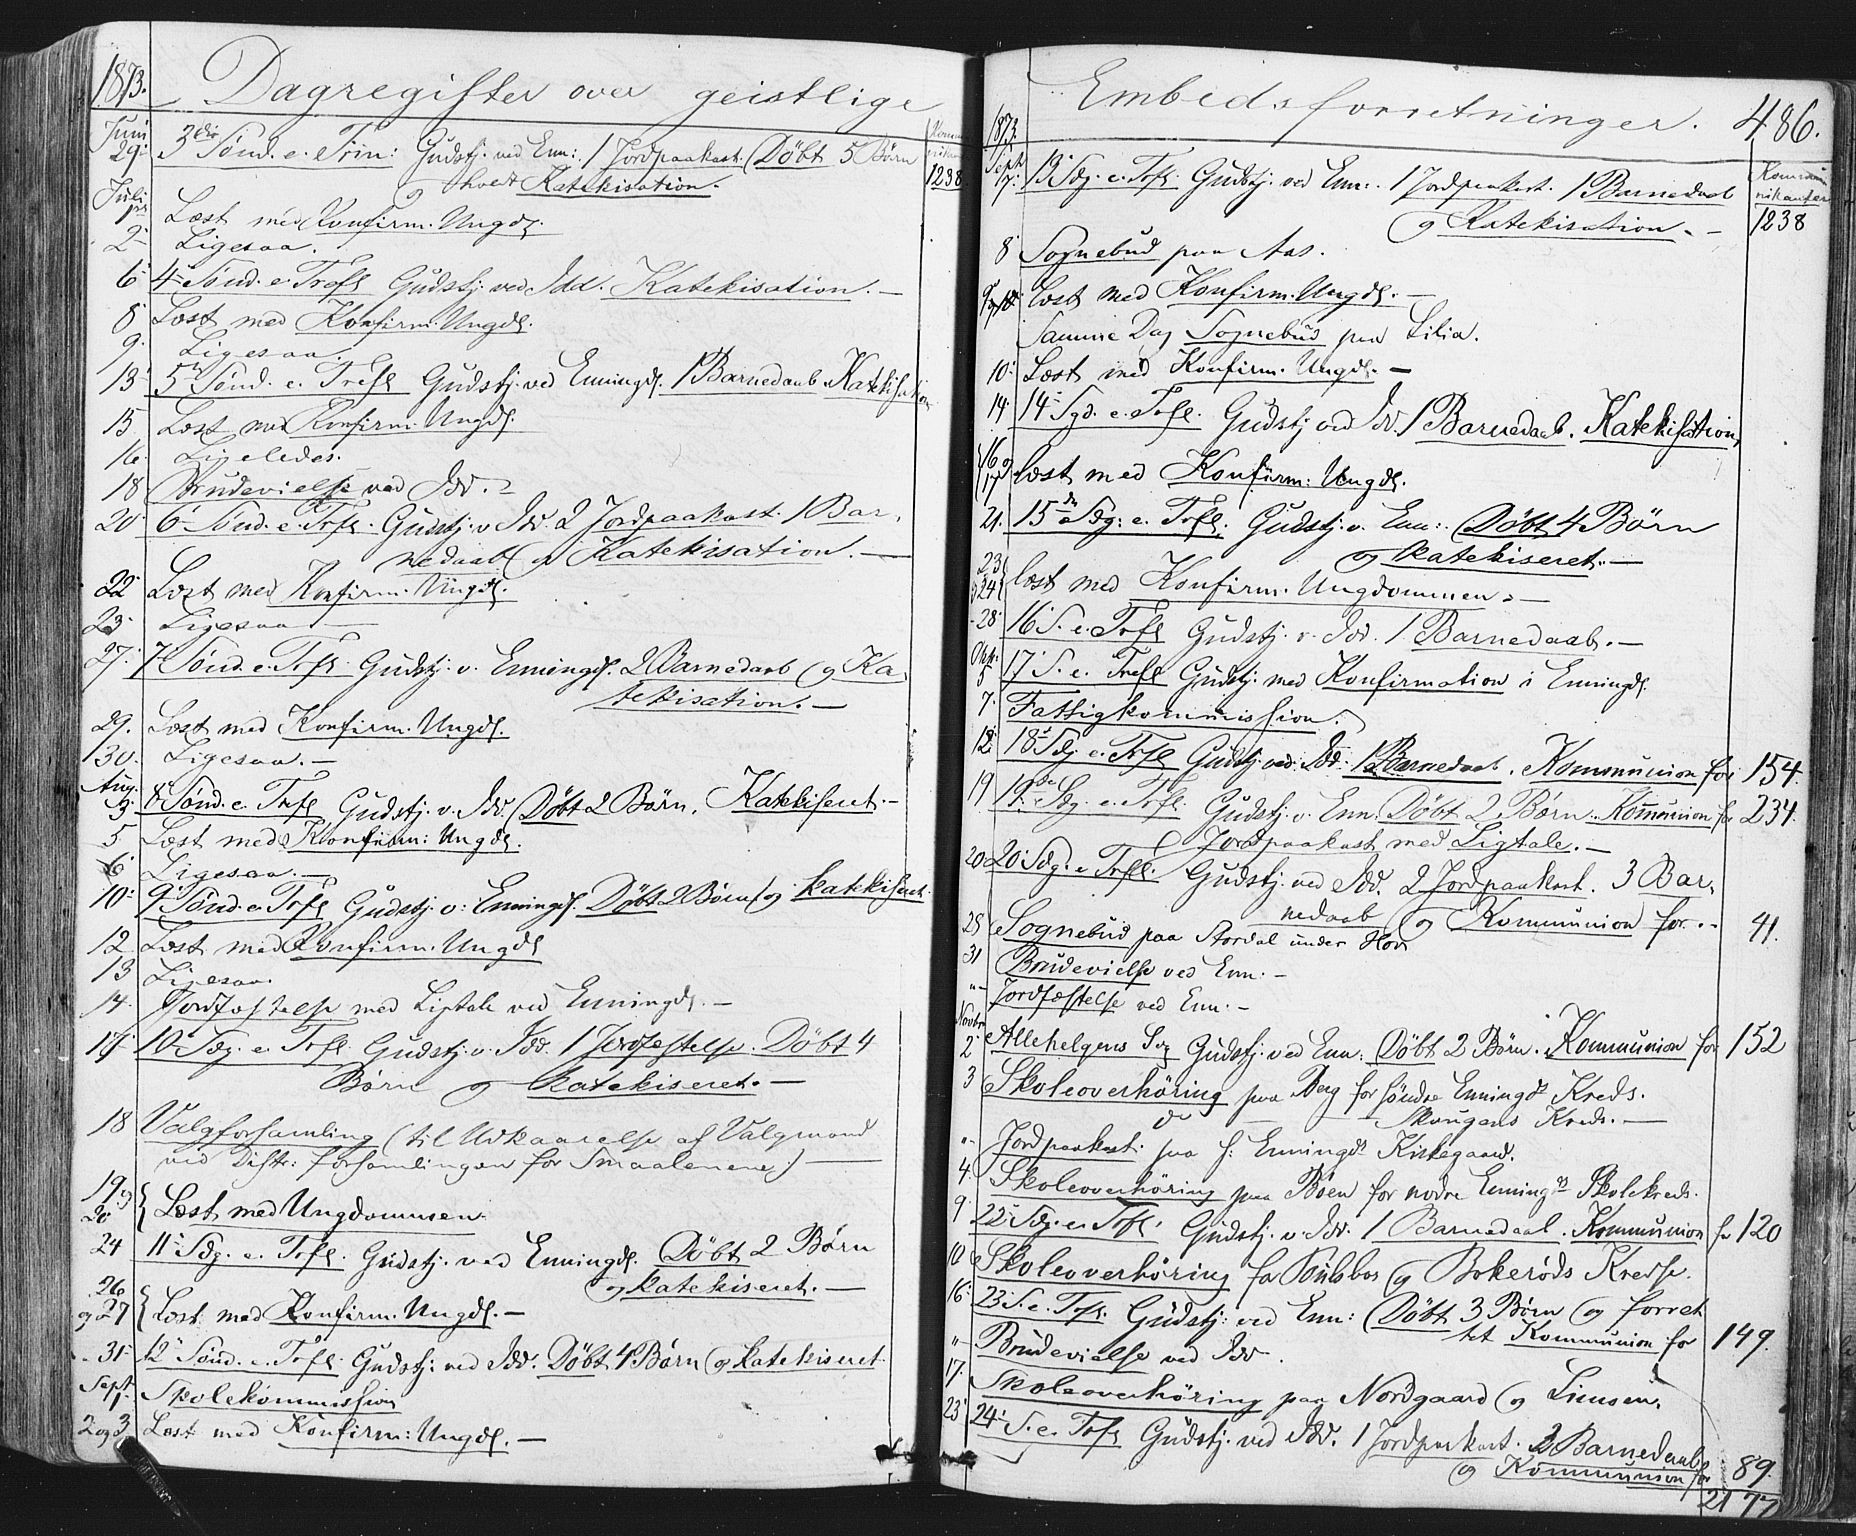 1873. Dagregister over geistlige
Juni 29. 3die Sønd. e. Trin: Gudstj. ved Enn: 1 Jordpaakast. Døbt 5 Børn
og holdt Katekisation. 1238
Juli 1. Læst med Konfirm. Ungd.
2 Ligesaa.
6 4 Sønd. e. Trefl Gudstj. ved Idd. Katekisation. —
8 Læst med Konfirm. Ungd.
9. Ligesaa.
13 5 Sønd. e. Trefl Gudstj. ved Enningd. 1 Barnedaab. Katekisation
15 Læst med Konfirm. Ungd.
16. Ligeledes.
18 Brudevielse ved Idd. —
20 6 Sønd. e. Trfl. Gudstj. v. Idd. 2 Jordpaakast. 1 Bar,
nedaab og Katekisation. —
22 Læst med Konfirm. Ungd.
23 Ligesaa —
27. 7 Sønd. e. Trfl. Gudstj. v. Enningd. 2 Barnedaab og Ka,
tekisation. —
29. Læst med Konfirm. Ungd.
30. Ligesaa. —
Aug. 3. 8 Sønd. e. Trefl Gudstj. v. Idd. Døbt 2 Børn. Katekiseret. —
5 Læst med Konfirm: Ungd.
6 Ligesaa. —
10. 9 Sønd. e. Trfl Gudstj. v: Enningd. Døbt 2 Børn og katekiseret.
12 Læst med Konfirm. Ungd
13 Ligesaa.
14. Jordfæstelse med Ligtale ved Enningd. —
17 10 Sdg. e. Trfl. Gudstj. v. Idd. 1 Jordfæstelse. Døbt 4
Børn og katekiseret. —
18 Valgforsamling (til Udkaarelse af Valgmænd
ved Distr: forsamlingen for Smaalenene) —
19 og 20 Læst med Ungdommen.
24 11 Sdg. e. Trfl. Gudstj. ved Enningd. Døbt 2 Børn
og katekiseret. —
26 og 27 Læst med Konfirm. Ungd. —
31 12 Sønd. e. Trfl. Gudstj. ved Idd. Døbt 4 Børn og katekiseret
Sept. 1. Skolekommission
2 og 3. Læst med Konfirm: Ungd. —
Embedsforretninger. 486.
1873. Kommunikanter
Sept 7. 13 Sdg. e. Trfl. Gudstj. ved Enn:. 1 Jordpaakast. 1 Barnedaab
og Katekisation. — 1238
8 Sognebud paa Aas.
Læst med Konfirm. Ungd. —
Samme Dag Sognebud paa Lilia.
10. Læst med Konfirm. Ungd. —
14. 14 Sgd. e. Trfl. Gudstj ved Idd. 1 Barnedaab. Katekisation,
16 og 17 læst med Konfirm: Ungd.
21. 15de Sdg: e. Trfl. Gudstj. v. Enn:. Døbt 4 Børn
og katekiseret. —
23 24 læst med Konfirm. Ungdommen. —
28. 16 S. e. Trfl Gudstj. v. Idd. 1 Barnedaab. —
Okt. 5 17 S. e. Trefl Gudstj. med Konfirmation i Enningd.
7. Fattigkommission.
12. 18 Sdg. e. Trfl Gudstj. ved. Idd. 1 Barnedaab. Kommunion for 154.
19 19de Sdg. e. Trfl. Gudstj. v. Enn. Døbt 2 Børn. Kommunion for 234.
Jordpaakast med Ligtale. —
20 20 Sdg. e. Trfl. Gudstj. ved Idd. 2 Jordpaakast. 3 Bar,
nedaab og Kommunion for. — 41.
25 Sognebud paa Stordal under Hov
31 Brudevielse ved Enn. —
" Jordfæstelse ved Enn. —
Novbr 2 Allehelgens Sdg Gudstj. ved Enn: Døbt 2 Børn. Kommunion for 152
3 Skoleoverhøring paa Berg for søndre Enningds Kreds.
do — Skougens Kreds. —
" Jordpaakast paa s. Enningds Kirkegaard.
4. Skoleoverhøring paa Bøen for nodre Enningds Skolekreds.
9. 22 Sdg. e. Trfl. Gudstj. v. Idd. 1 Barnedaab. Kommunion for 120
10 Skoleoverhøring for og Bokerøds Kredse.
16. 23 S. e. Trfl. Gudstj. ved Enn: Døbt 3 Børn og forret
tet Kommunion for 149.
" Brudevielse ved Idd.
17. Skoleoverhøring paa Nordgaard og
23 24 S. e. Trfl Gudstj. ved Idd. 1 Jordpaakast. 2 Barnedaab
og Kommunion for 89.
2177